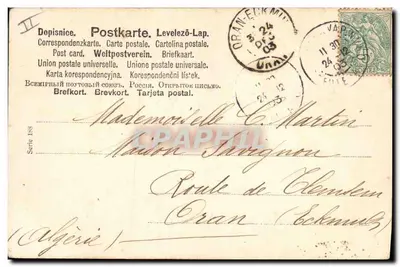 II
Dopisnice. Postkarte. Levelező-Lap.
Correspondenzkarte. Carte postale. Cartolina postale.
Post card. Weltpostverein. Briefkaart.
Union postale universelle. Unione postale universale.
Karta korespondencyjna. Korespondenční lístek.
Всемірный почтовый союзъ. Россія. Открытое письмо.
Brefkort. Brevkort. Tarjeta postal.
ORAN-ECKMUHL
24
DEC
03
ORAN
11
24
03
Serie 188
CPARAMA
Mademoiselle C. Martin
Maison Savignon
Route de Tlemsem
Oran (Eckmulh)
(Algérie)